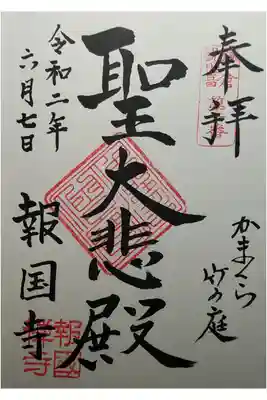 奉拝
かまくら
竹の庭
聖大悲殿
令和二年
六月七日
報国寺
報國
禅寺